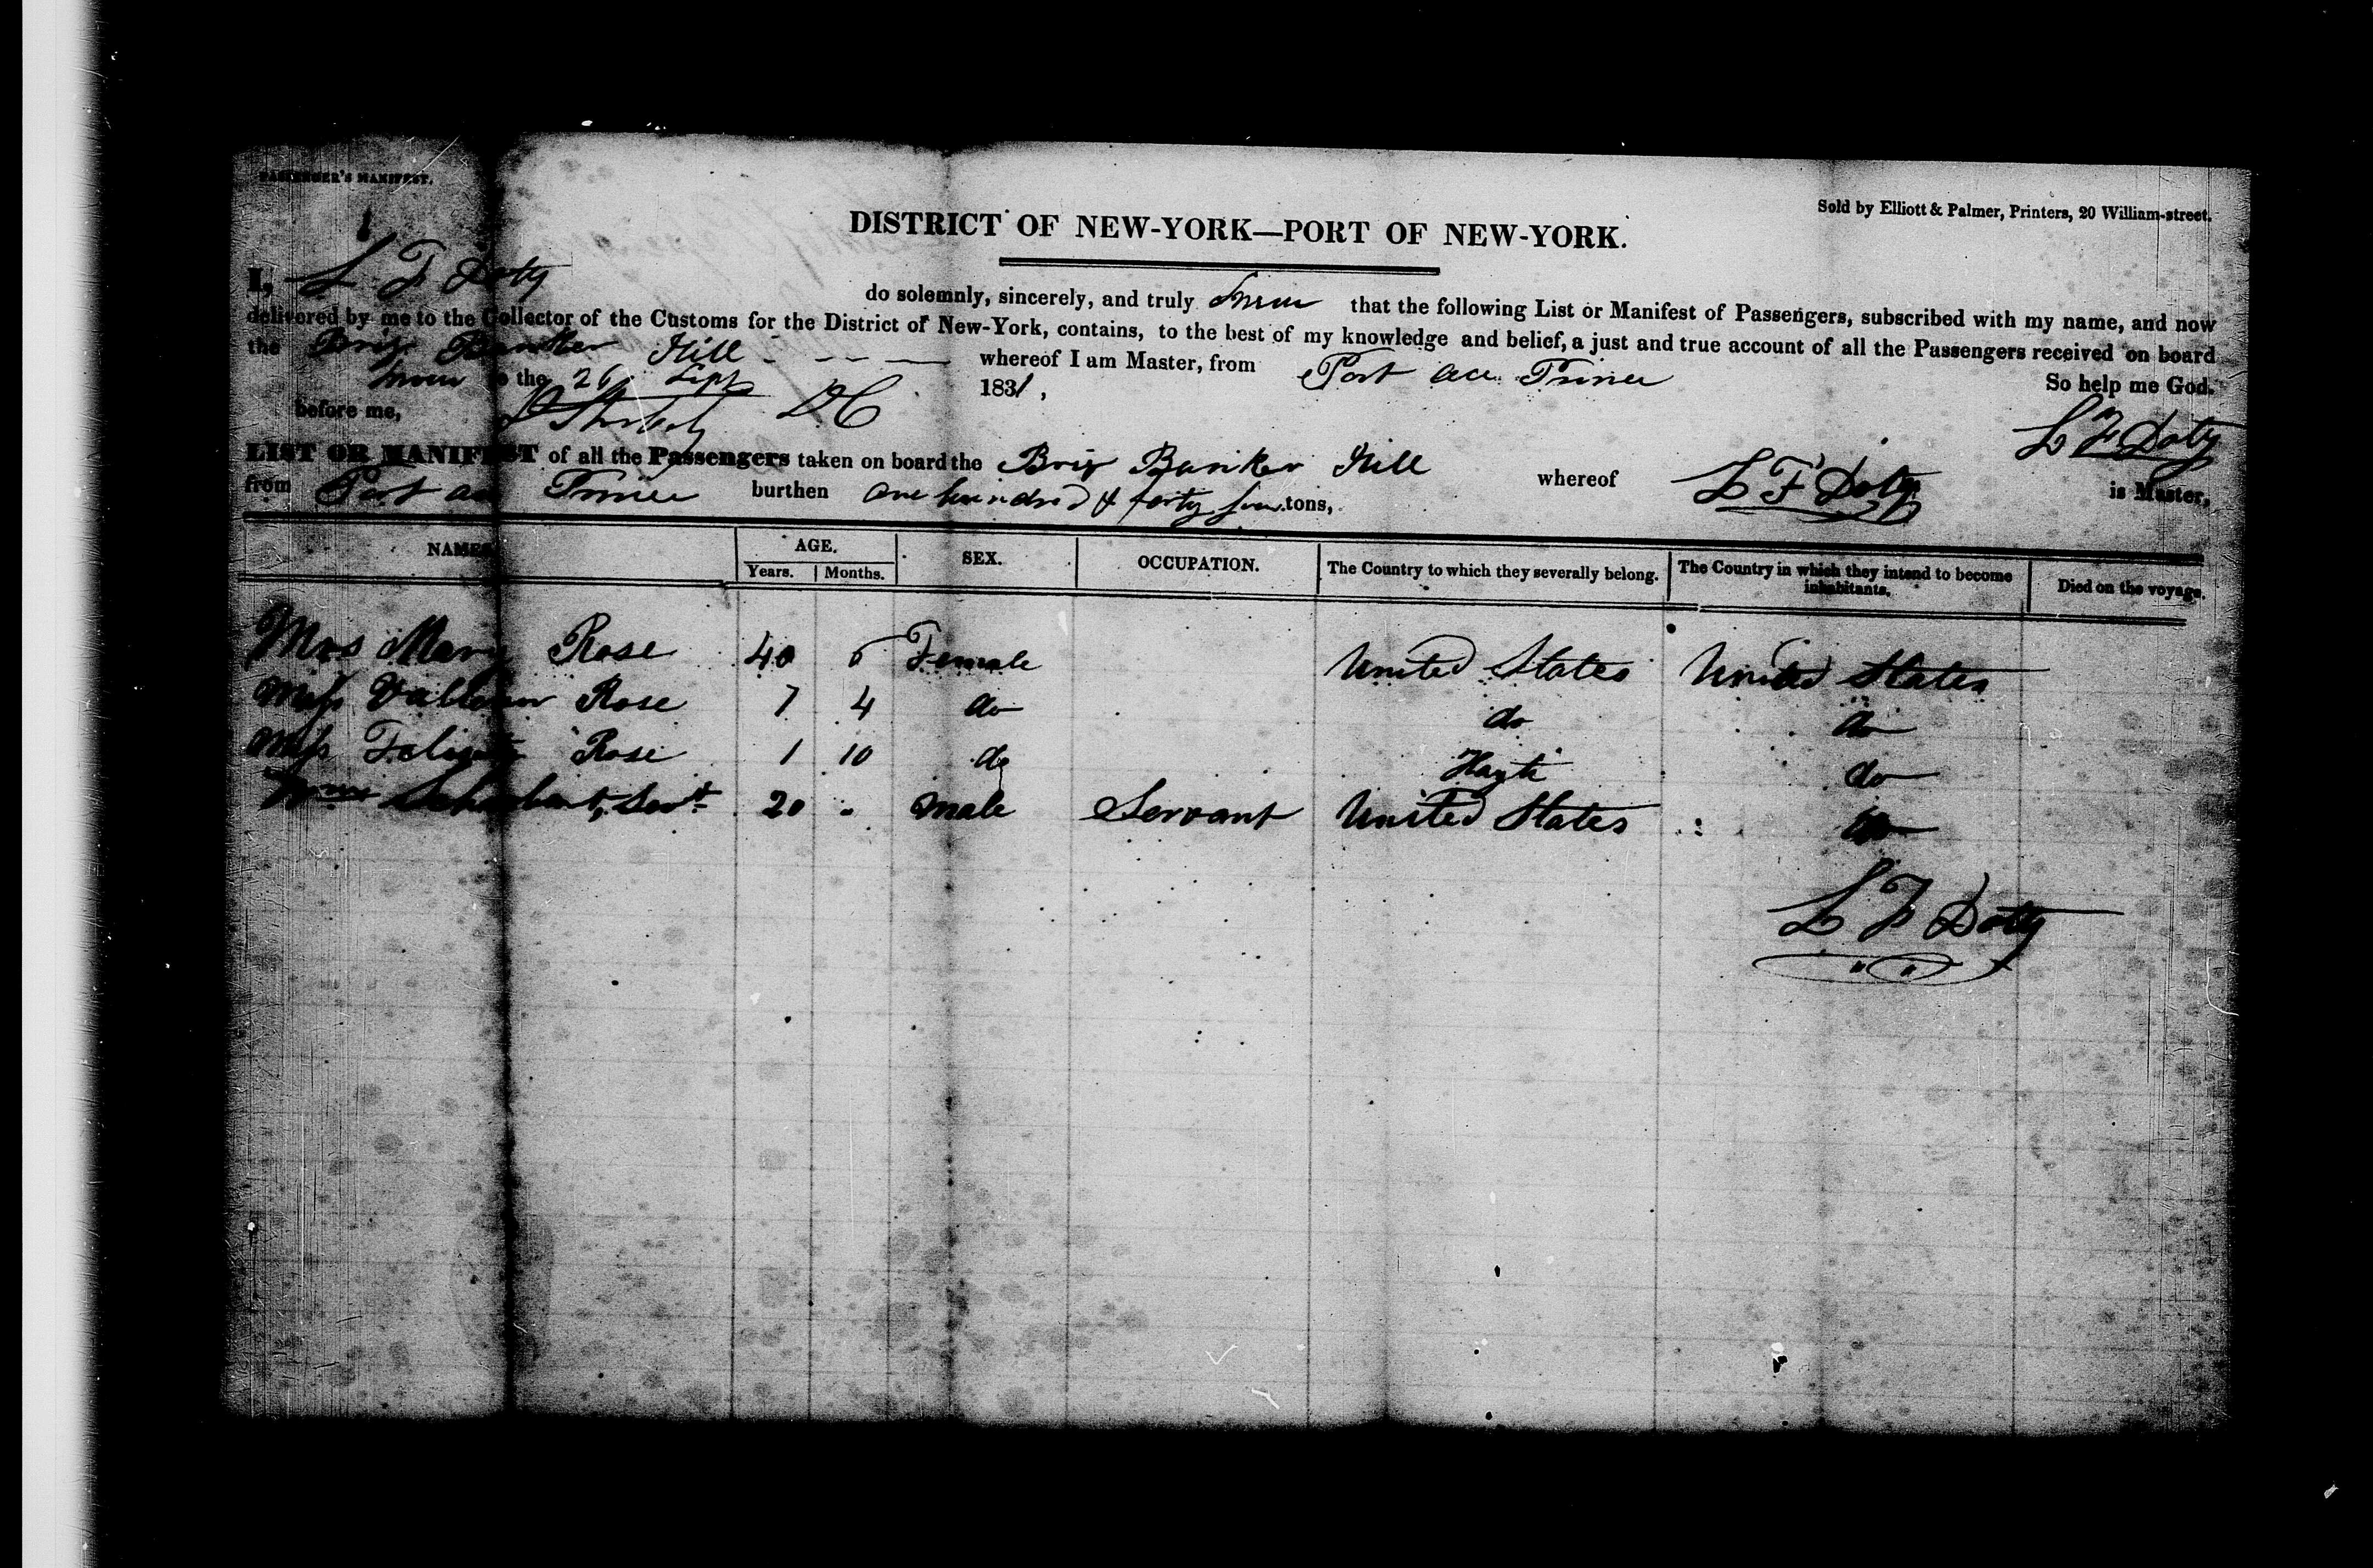 PASSENGER'S MANIFEST.
Sold by Elliott & Palmer, Printers, 20 William-street.
DISTRICT OF NEW-YORK—PORT OF NEW-YORK.
I, L F Doty do solemnly, sincerely, and truly swear that the following List or Manifest of Passengers, subscribed with my name, and now
delivered by me to the Collector of the Customs for the District of New-York, contains, to the best of my knowledge and belief, a just and true account of all the Passengers received on board
the Brig Bunker Hill whereof I am Master, from Port au Prince So help me God.
to the 26 Sept 1831,
before me, DC L F Doty
LIST OR MANIFEST of all the Passengers taken on board the Brig Bunker Hill whereof L F Doty is Master,
from Port au Prince burthen One hundred & forty tons,
NAMES AGE. SEX. OCCUPATION. The Country to which they severally belong. The Country in which they intend to become inhabitants. Died on the voyage.
Years. Months.
Mrs Mary Rose 40 6 Female United States United States
Miss Rose 7 4 do do do
Miss Rose 1 10 do Hayti do
Servt 20 " Male Servant United States do
L F Doty